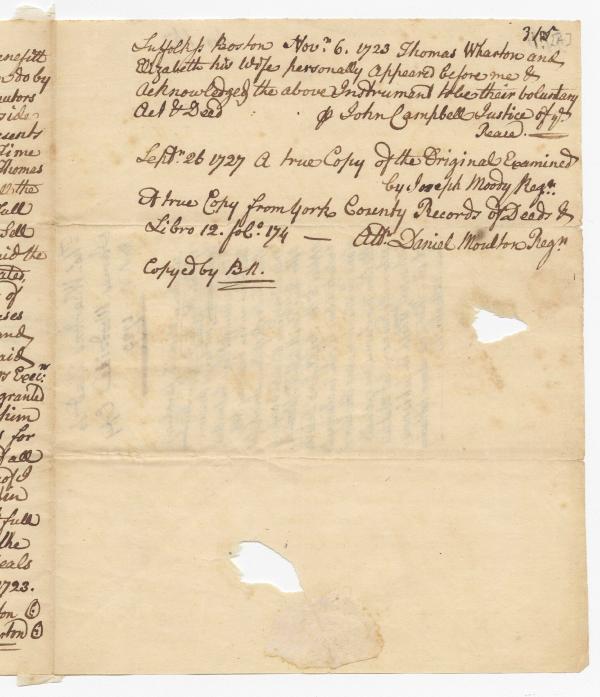 Suffolk ss Boston Nov.r 6. 1723 Thomas Wharton and
Elizabeth his Wife personally Appeared before me &
Acknowledged the above Instrument to be their voluntary
Act & Deed John Campbell Justice of ye
Peace.
Sept.r 26 1727 A true Copy of the Original Examined
by Joseph Moody Reg.r
A true Copy from York County Records of Deeds &
Libro 12. fol.o 174 — Att.r Daniel Moulton Reg.r
Copyed by
enefitt
do by
utors
side
cents
Time
Thomas
the
full
Sell
aid the
ated,
of
ses
and
aid
rs Exec.rs
granted
him
for
all
of I
in
full
the
eals
1723.
ton
rton